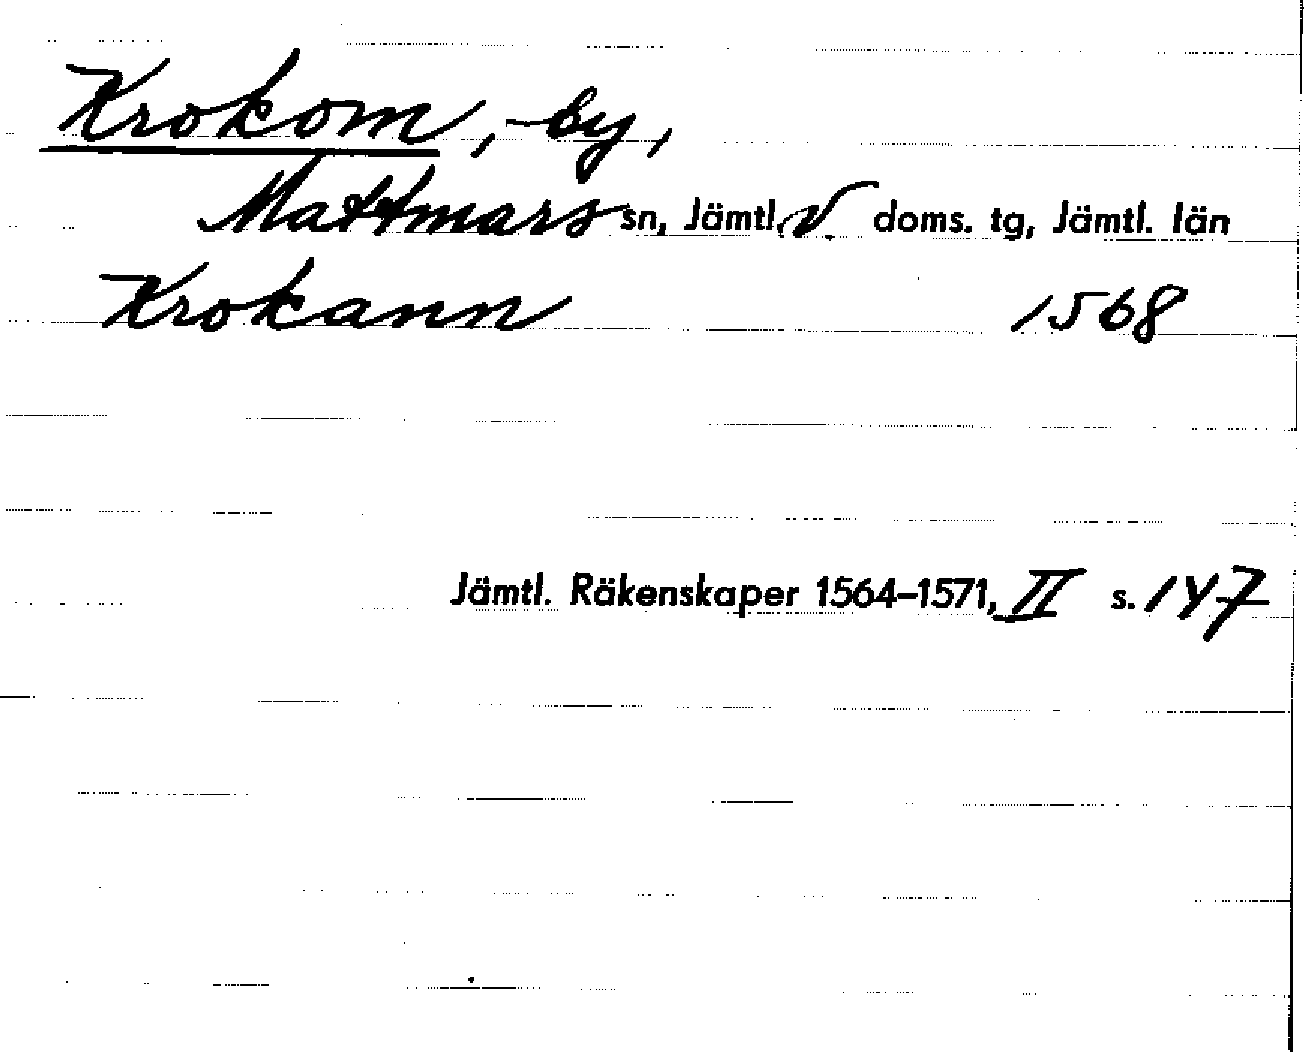 Krokom, by,
Mattmars sn, Jämtl. V. doms. tg, Jämtl. län
Krokann 1568
Jämtl. Räkenskaper 1564–1571, II s. 147